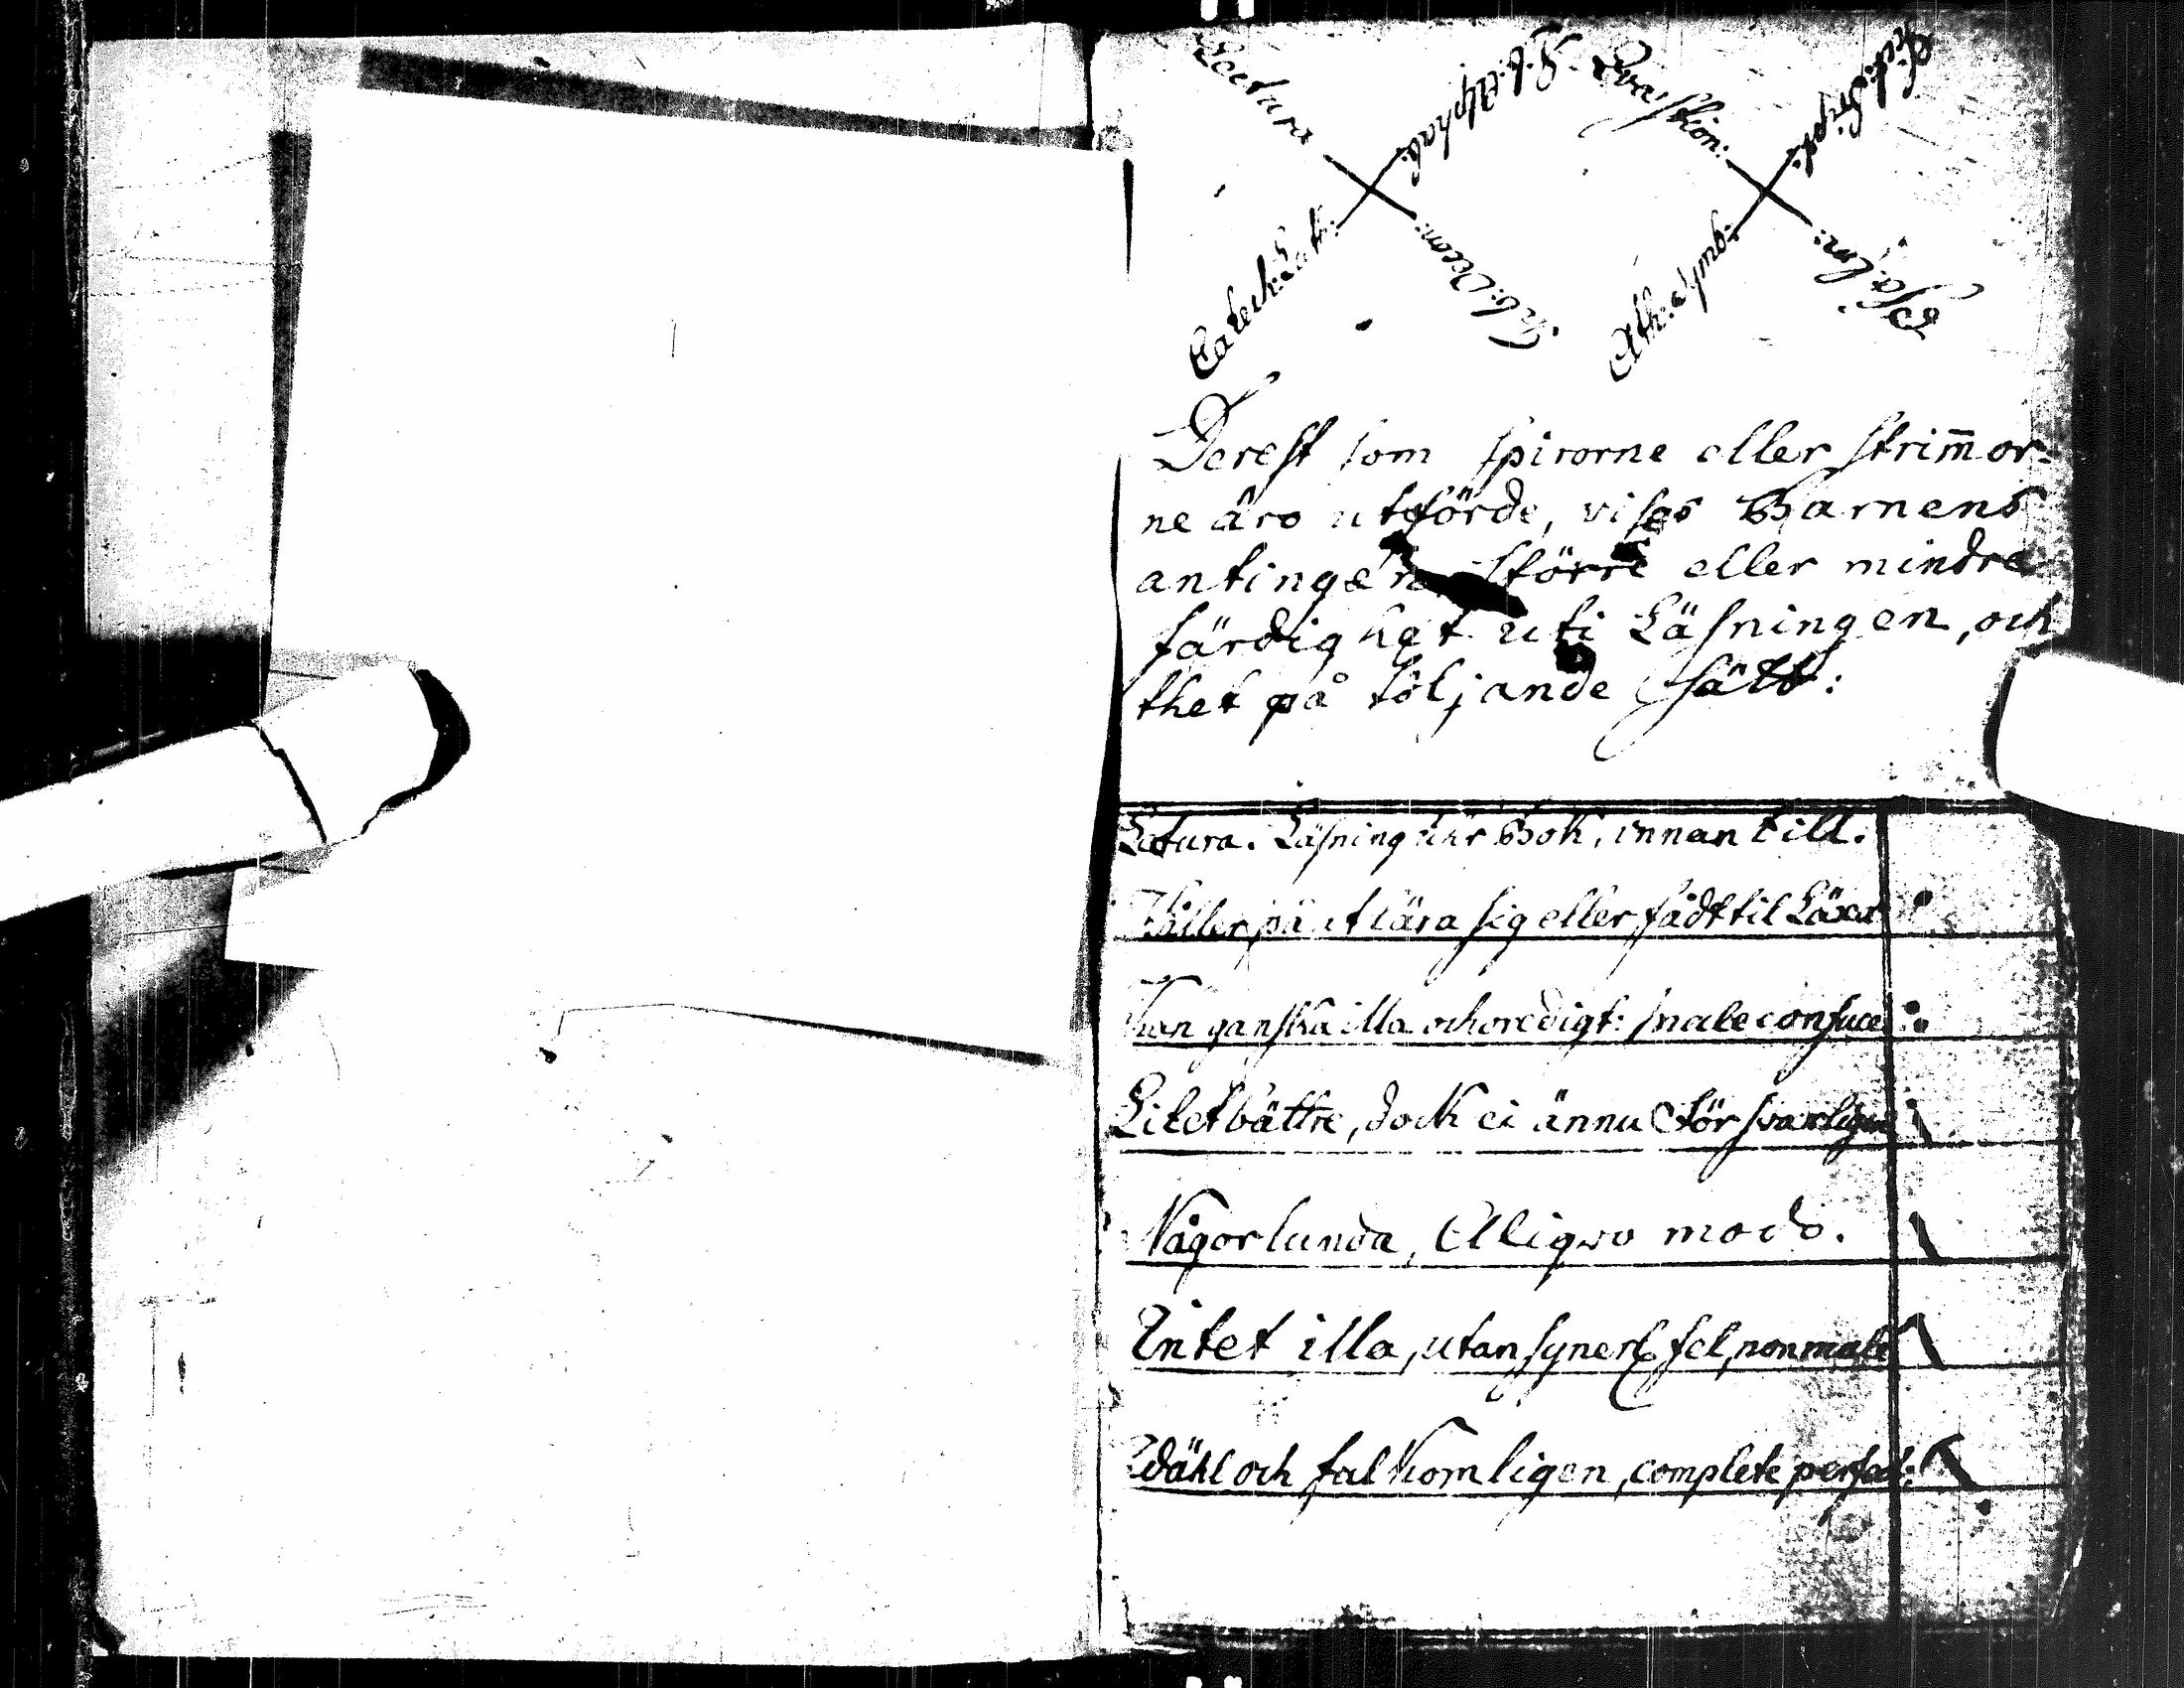 Lectura
S.t. Alphab:
Quæstion:
Catech: Luth:
Tab: Oecon:
Ath: Symb:
Psalm:
Derest som spirorne eller strim̄or-
ne äro utförde, vises Barnens
antingen större eller mindre
färdighet uti Läsningen, och
thet på följande sätt:
Lectura. Läsning uhr Bok, innan till.
Håller på at lära sig eller fådt til Läxa
Kan ganska illa och oredigt: male
Litet bättre, dock ei ännu försvarligen
Någorlunda, Aliqvo modo.
Intet illa, utan synerl fel, non male
Wähl och fulkom̄ligen, complete perfect: